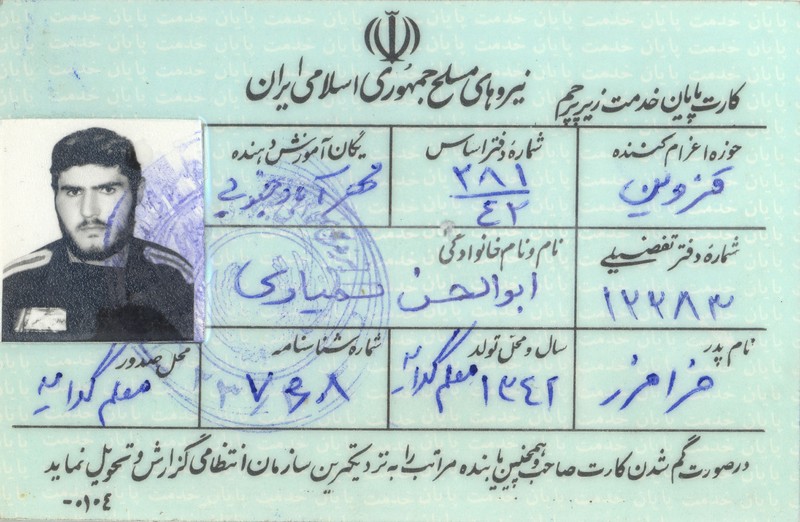 نیروهای مسلح جمهوری اسلامی ایران
کارت پایان خدمت زیر پرچم
حوزه اعزام کننده
قزوین
شماره دفتر اساس
۲۸۱
۴۲
یگان آموزش دهنده
شماره دفتر تفضیلی
۱۲۲۸۳
نام و نام خانوادگی
ابوالحسن
نام پدر
فرامرز
سال و محل تولد
۱۳۴۲ معلم کلایه
شماره شناسنامه
محل صدور
معلم کلایه
در صورت گم شدن کارت صاحب و همچنین یابنده مراتب را به نزدیکترین سازمان انتظامی گزارش و تحویل نماید
۰۱۰۴-